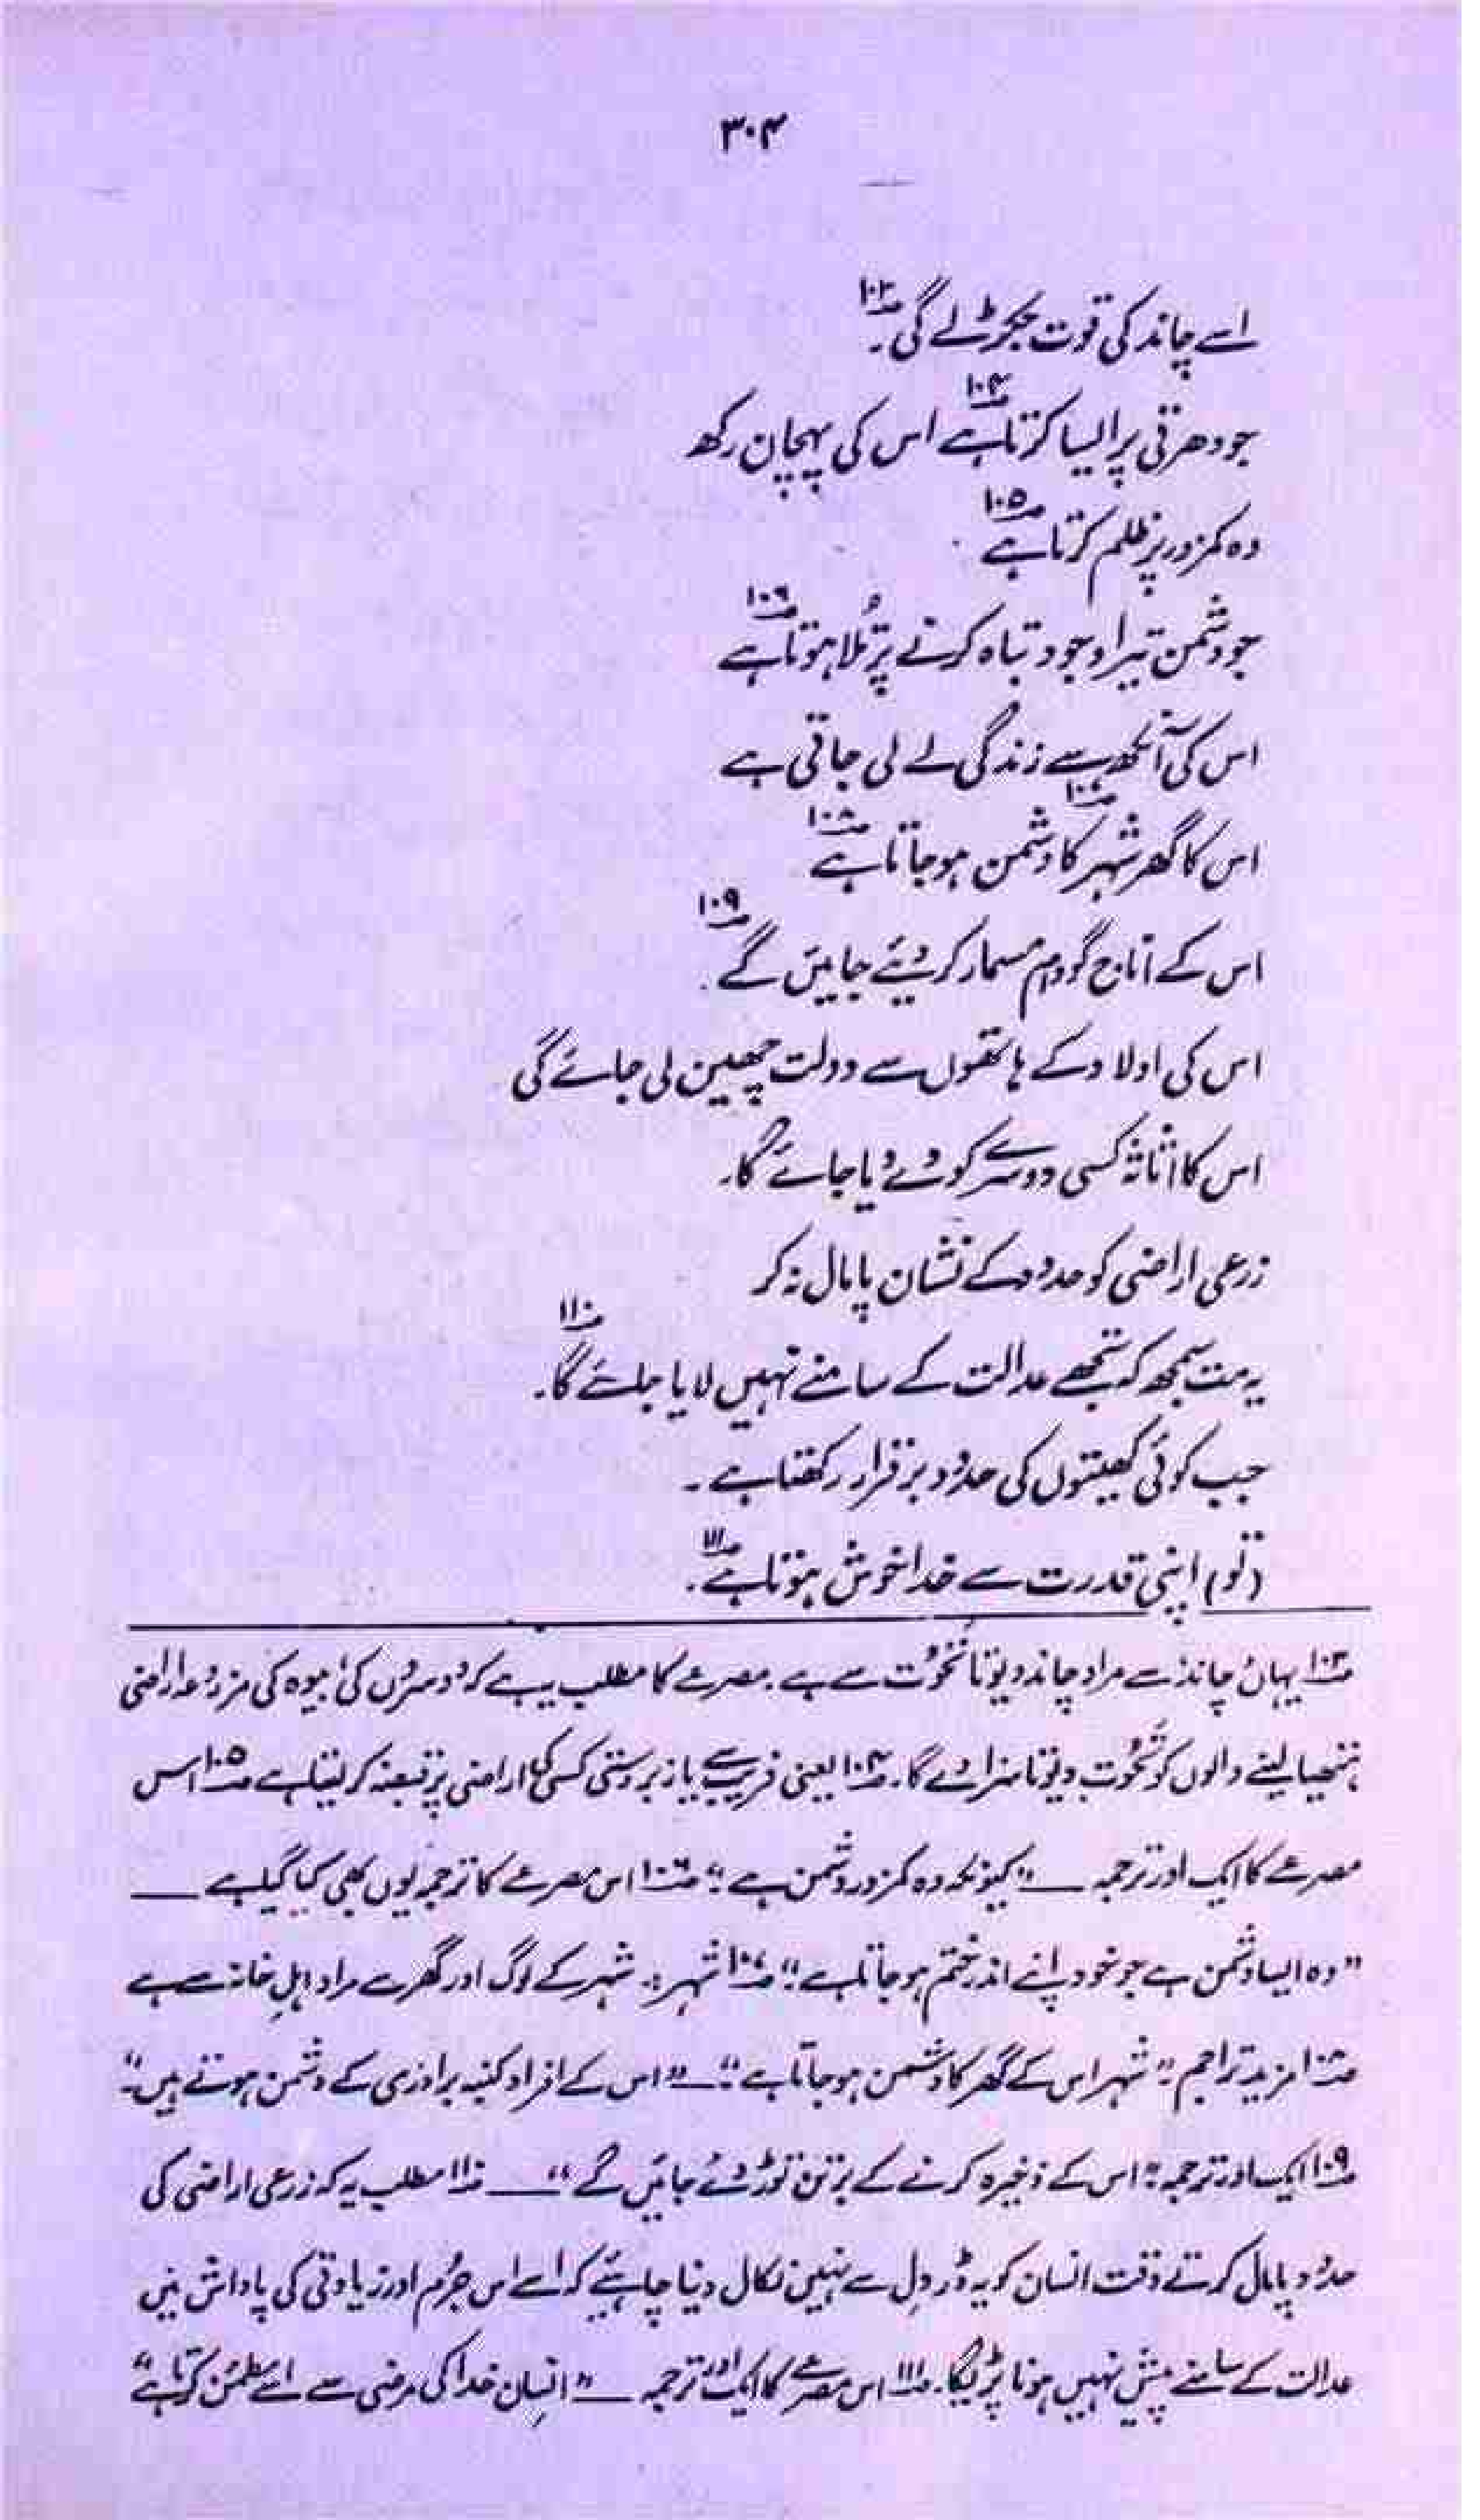 ۳۰۴
اسے چاند کی قوت جکڑ لے گی۔ ۱۰۳
جو دھرتی پر ایسا کرتا ہے ۱۰۴ اس کی پہچان رکھ
وہ کمزور پر ظلم کرتا ہے ۱۰۵
جو دشمن تیرا وجود تباہ کرنے پر تُلا ہوتا ہے ۱۰۶
اس کی آنکھ سے زندگی لے لی جاتی ہے
اس کا گھر شہر ۱۰۷ کا دشمن ہو جاتا ہے ۱۰۸
اس کے اناج گودام مسمار کر دیئے جائیں گے ۱۰۹
اس کی اولاد کے ہاتھوں سے دولت چھین لی جائے گی
اس کا اثاثہ کسی دوسرے کو دے دیا جائے گا۔
زرعی اراضی کو حدود کے نشان پامال نہ کر
یہ مت سمجھ کہ تجھے عدالت کے سامنے نہیں لایا جائے گا۔ ۱۱۰
جب کوئی کھیتوں کی حدود برقرار رکھتا ہے ۔
(تو) اپنی قدرت سے خدا خوش ہوتا ہے ۱۱۱۔
۱۰۳ یہاں چاند سے مراد چاند دیوتا تحُوت سے ہے۔ مصرعے کا مطلب یہ ہے کہ دوسروں کی / بیوہ کی مزروعہ اراضی
ہتھیا لینے والوں کو تحُوت دیوتا سزا دے گا۔ ۱۰۴ یعنی فریب سے یا زبردستی کسی کی اراضی پر قبضہ کر لیتا ہے ۱۰۵ اس
مصرعے کا ایک اور ترجمہ ــــ "کیونکہ وہ کمزور دشمن ہے"۔ ۱۰۶ اس مصرعے کا ترجمہ یوں بھی کیا گیا ہے ــــ
"وہ ایسا دشمن ہے جو خود اپنے اندر ختم ہو جاتا ہے"۔ ۱۰۷ شہر: شہر کے لوگ اور گھر سے مراد اہلِ خانہ سے ہے
۱۰۸ مزید تراجم: "شہر اس کے گھر کا دشمن ہو جاتا ہے"۔ــــ "اس کے افراد کنبہ برادری کے دشمن ہوتے ہیں"۔
۱۰۹ ایک اور ترجمہ: "اس کے ذخیرہ کرنے کے برتن توڑ دئے جائیں گے" ــــ ۱۱۰ مطلب یہ کہ زرعی اراضی کی
حدود پامال کرتے وقت انسان کو یہ ڈر دل سے نہیں نکال دینا چاہئیے کہ اسے اس جرُم اور زیادتی کی پاداش میں
عدالت کے سامنے پیش نہیں ہونا پڑیگا۔ ۱۱۱ اس مصرعے کا ایک اور ترجمہ ــــ "انسان خدا کی مرضی سے اسے مطمئن کرتا ہے"